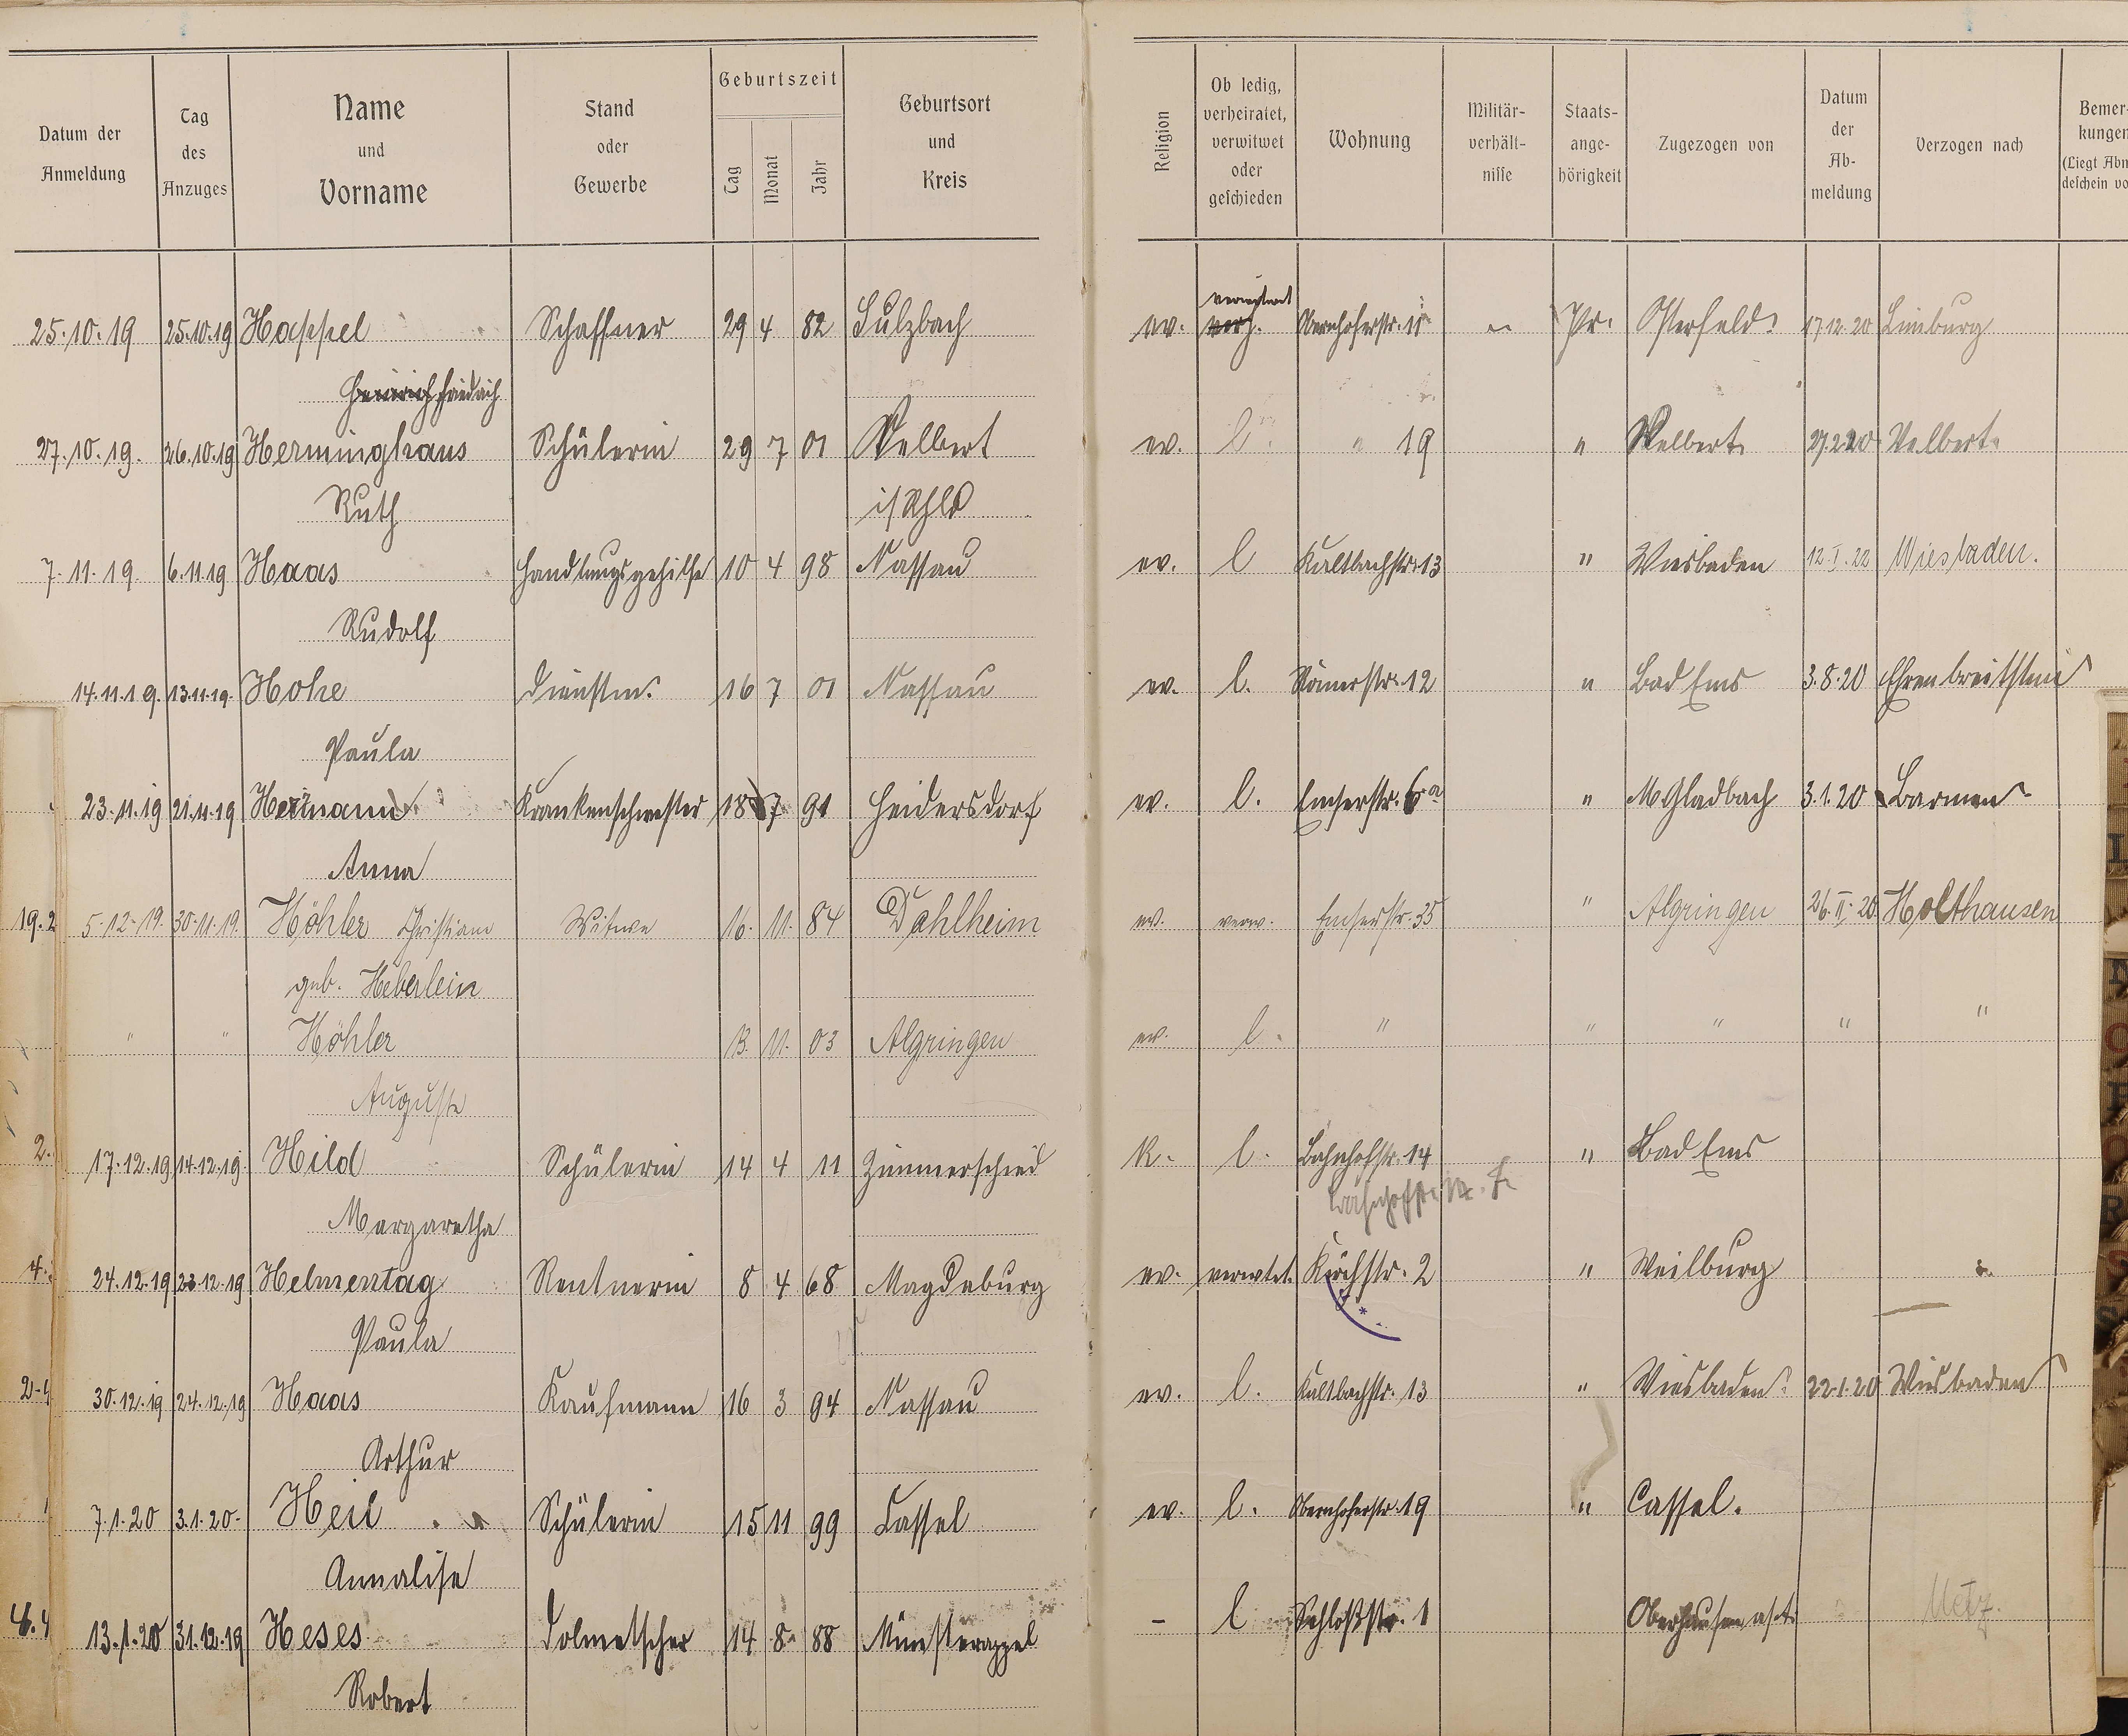 Datum der Anmeldung Tag des Anzuges Name und Vorname Stand oder Gewerbe Geburtszeit Tag Monat Jahr Geburtsort und Kreis Religion Ob ledig, verheiratet, verwitwet oder geschieden Wohnung Militär-verhält-nisse Staats-ange-hörigkeit Zugezogen von Datum der Ab-meldung Verzogen nach Bemer-kungen (Liegt Abm deschein vo
25.10.19 25.10.19 Happel Schaffner 29 4 82 Sulzbach ev. Obernhoferstr. 11 Pr. Osterfeld 17.12.20 Limburg
Heinrich Friedrich
27.10.19. 26.10.19 Herminghaus Schülerin 29 7 01 Velbert ev. l. " 19 " Velbert 27.2.20 Velbert.
Ruth i/Rhld
7.11.19. 6.11.19 Haas Handlungsgehilfe 10 4 98 Nassau ev. l Kaltbachstr. 13 " Wiesbaden 12.I.22 Wiesbaden.
Rudolf
14.11.19. 13.11.19. Hohe Dienstm. 16 7 01 Nassau ev. l. Römerstr. 12 " Bad Ems 3.8.20 Ehrenbreitstein
Paula
23.11.19 21.11.19 Hermann Krankenschwester 18 7 91 Heidersdorf ev. l. Emserstr. 6a " M Gladbach 3.1.20 Barmen
Anna
19.2 5.12.19. 30.11.19. Höhler Christiane Witwe 16. 11. 84 Dahlheim ev. verw. Emserstr. 35 " Algringen 26.II.20. Holthausen
geb. Heberlein
" " Höhler 13. 11. 03 Algringen ev. l. " " " " "
Auguste
2. 17.12.19 14.12.19. Hild Schülerin 14 4 11 Zimmerschied K. l. Bahnhofstr. 14 " Bad Ems
Margaretha
4. 24.12.19 23.12.19 Helmentag Rentnerin 8 4 68 Magdeburg ev. verwtet. Kirchstr. 2 " Weilburg
Paula
30.12.19 24.12.19 Haas Kaufmann 16 3 94 Nassau ev. l. Kaltbachstr. 13 " Wiesbaden 22.1.20 Wiesbaden
Arthur
7.1.20 3.1.20. Heil Schülerin 15 11 99 Cassel ev. l. Obernhoferstr. 19 " Cassel.
Annalise
13.1.20 31.12.19 Heses Dolmetscher 14 8. 88 Münsterappel - l Schloßstr. 1 Oberhausen Metz.
Robert